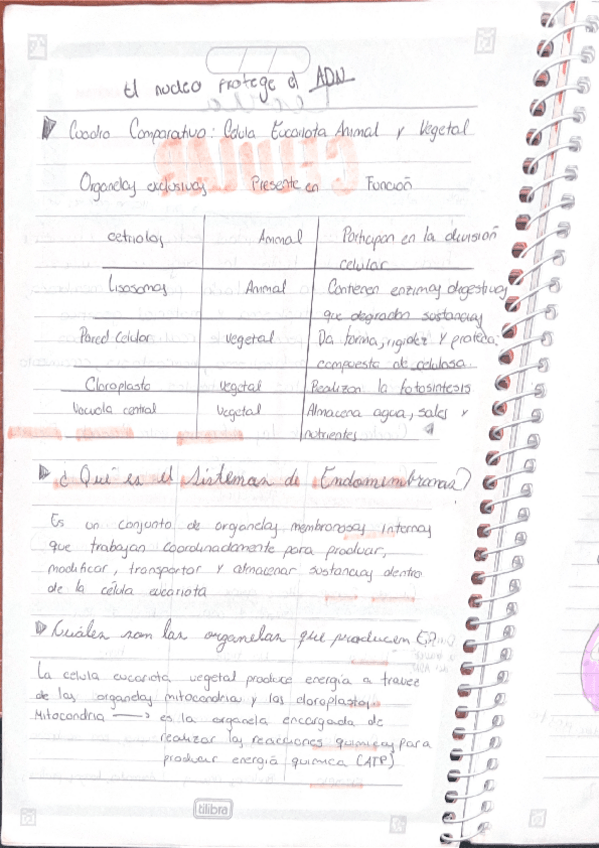 El nucleo protege el ADN
Cuadro Comparativo: Célula Eucariota Animal y Vegetal
Organelas exclusivas Presente en Función
cetriolos Animal Participan en la división celular
Lisosomas Animal Contienen enzimas digestivas que degradan sustancias
Pared Celular Vegetal Da forma, rigidez y proteca: compuesta de celulosa
Cloroplasto Vegetal Realizan la fotosintesis
Vacuola central Vegetal Almacena agua, sales y nutrientes
¿Qué es el Sistemas de Endomembranas?
Es un conjunto de organelas membranosas internas
que trabajan coordinadamente para producir,
modificar, transportar y almacenar sustancias dentro
de la célula eucariota
Cuáles son las organelas que producen E?
La celula eucariota vegetal produce energía a travez
de las organelas mitocondria y los cloroplastos
Mitocondria → es la organela encargada de
realizar las reacciones quimicas para
producir energia quimica (ATP)
tilibra